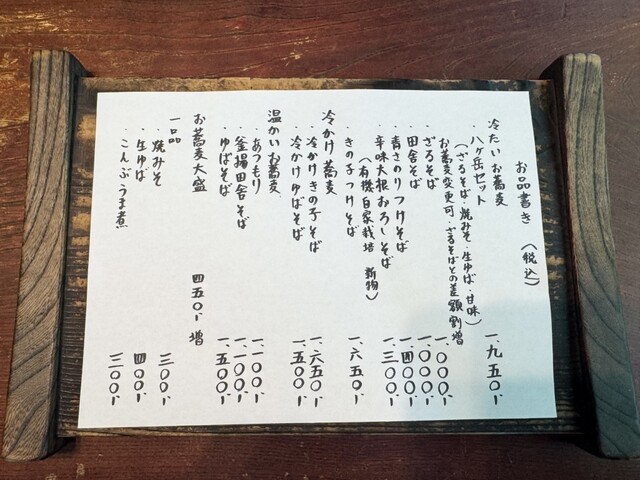 お品書き （税込）
冷たいお蕎麦
・八ヶ岳セット 一、九五〇-
（ざるそば・焼みそ・生ゆば・甘味）
お蕎麦変更可・ざるそばとの差額割増
・ざるそば 一、〇〇〇-
・田舎そば 一、〇〇〇-
・青さのりつけそば 一、四〇〇-
・辛味大根おろしそば 一、三〇〇-
（有機自家栽培 新物）
・きの子つけそば 一、六五〇-
冷かけ蕎麦
・冷かけきの子そば 一、六五〇-
・冷かけゆばそば 一、五〇〇-
温かいお蕎麦
・あつもり 一、一〇〇-
・釜揚田舎そば 一、一〇〇-
・ゆばそば 一、五〇〇-
お蕎麦大盛 四五〇-増
一品
・焼みそ 三〇〇-
・生ゆば 四〇〇-
・こんぶうま煮 三〇〇-